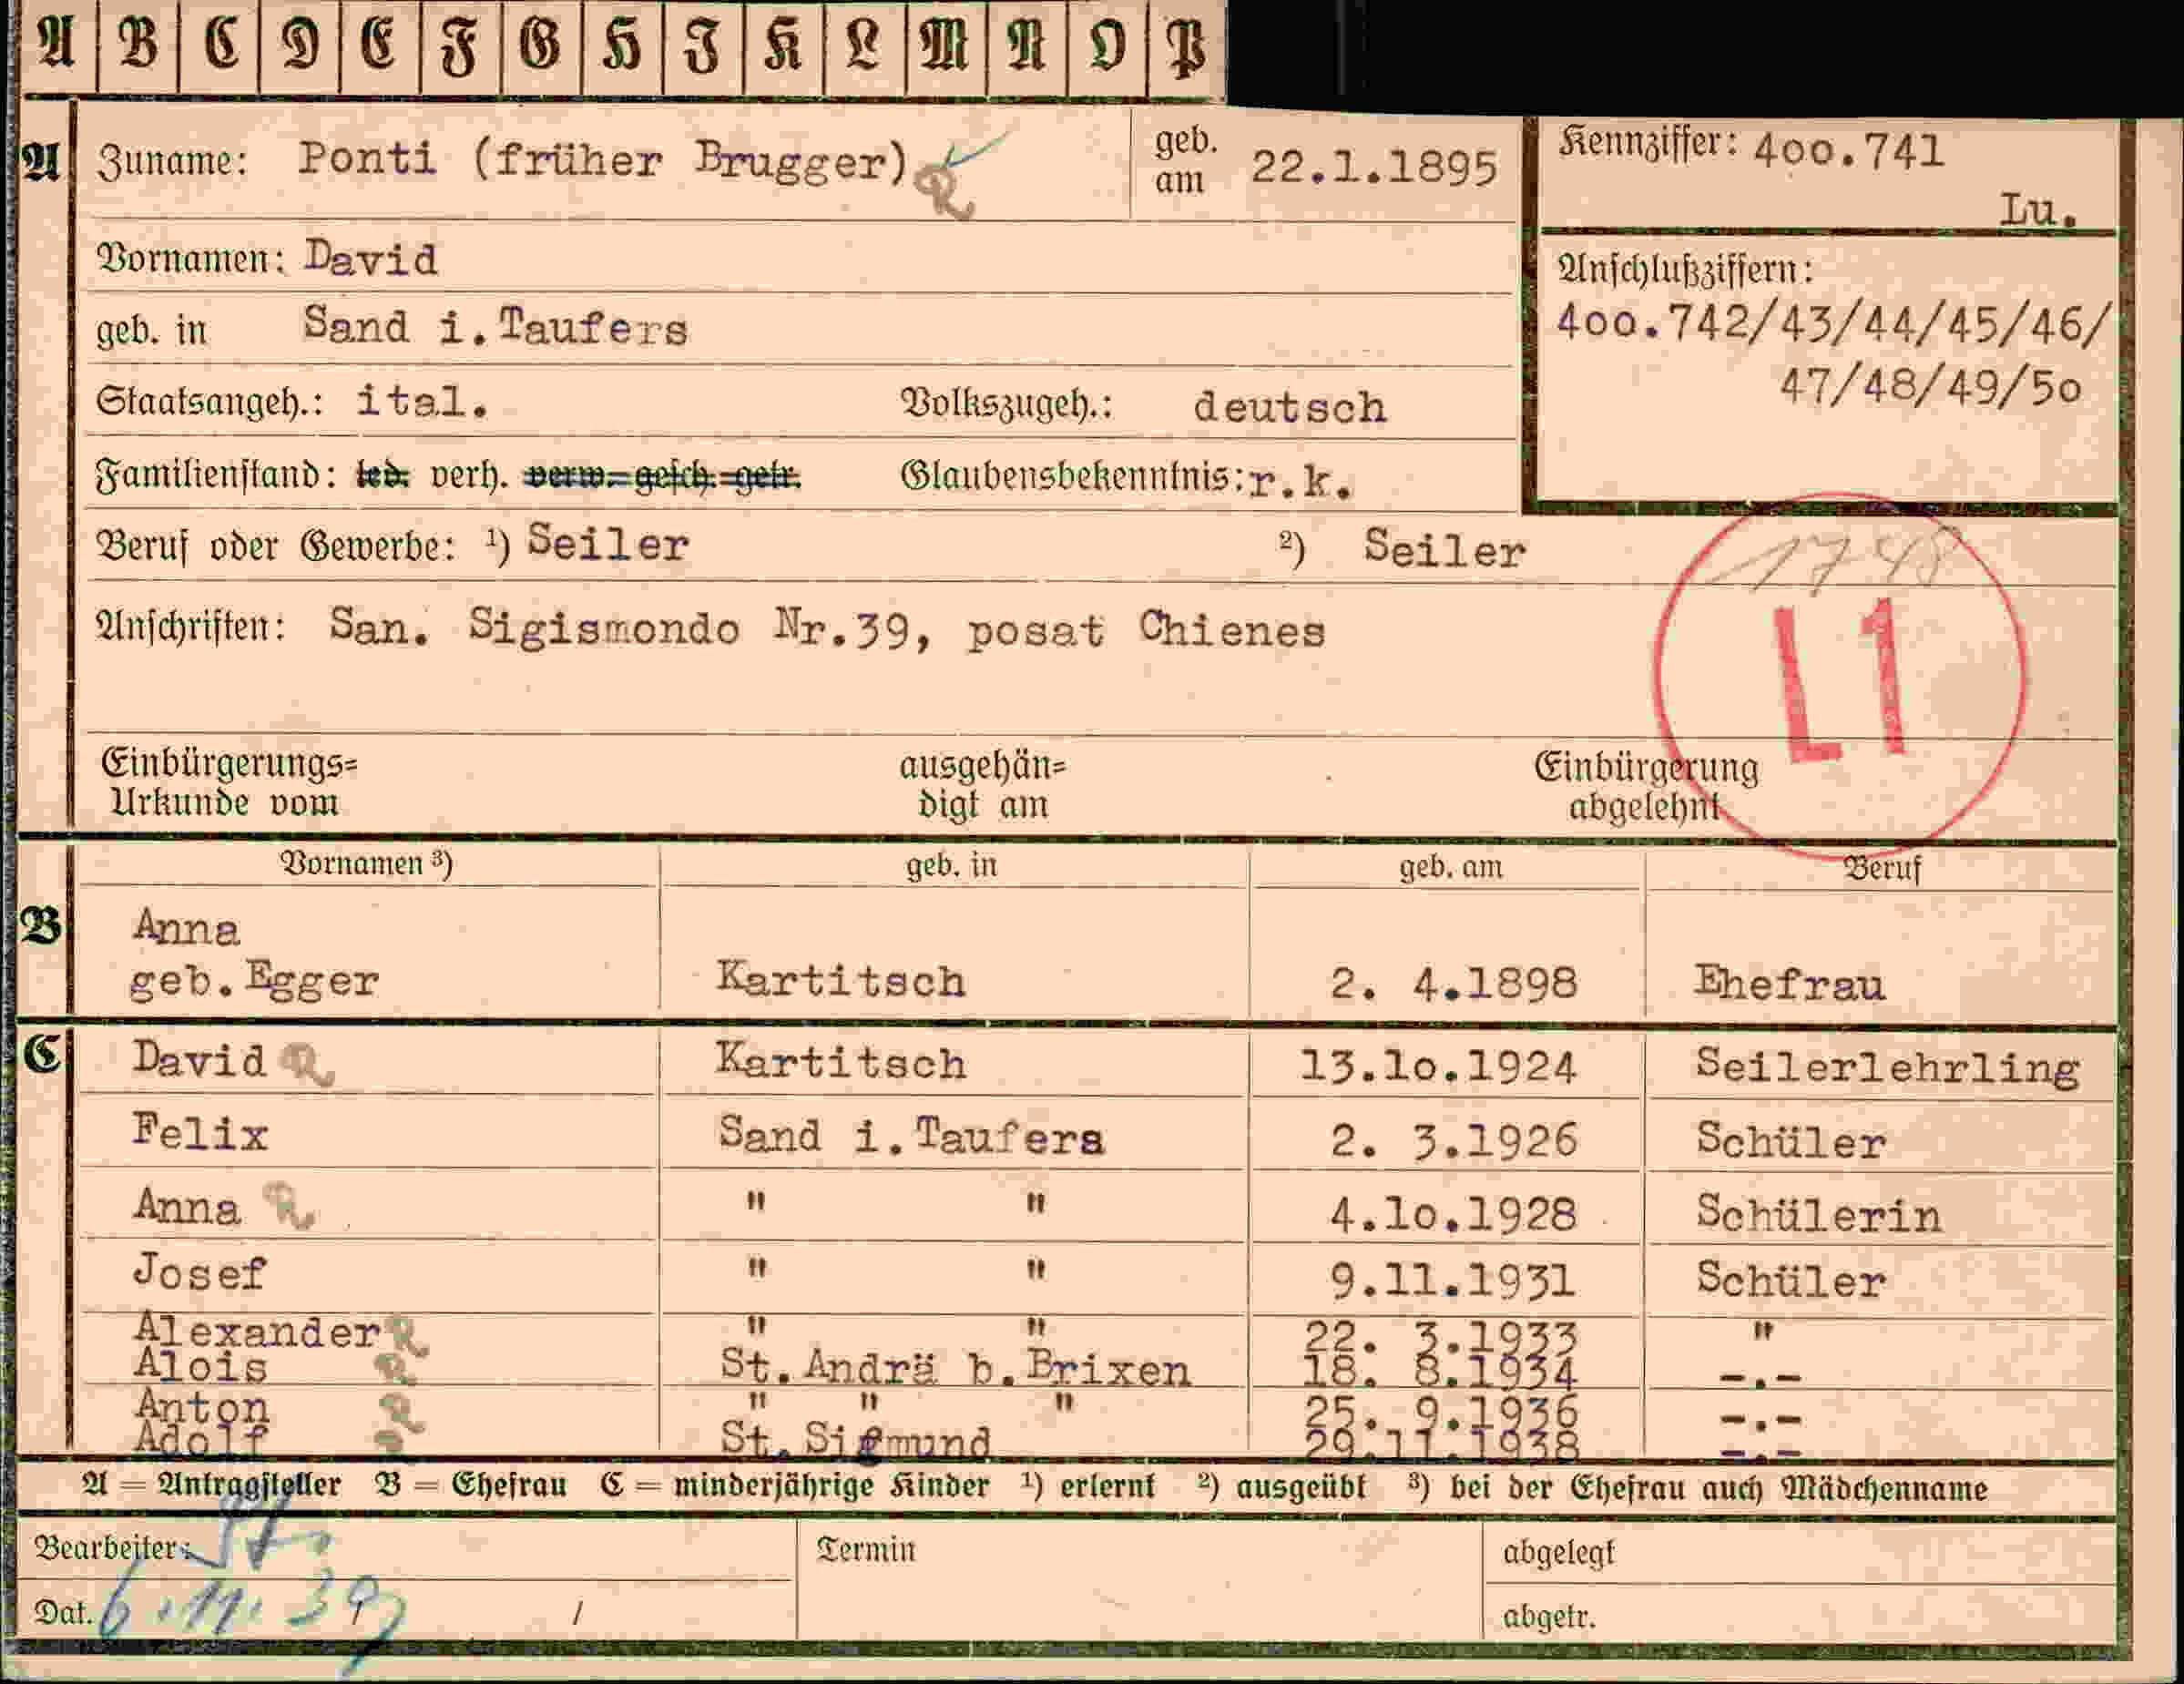 A B C D E F G H J K L M N O P
A Zuname: Ponti (früher Brugger) geb. am 22.1.1895 Kennziffer: 400.741
Lu.
Vornamen: David
Anschlußziffern:
geb. in Sand i.Taufers 400.742/43/44/45/46/
47/48/49/50
Staatsangeh.: ital. Volkszugeh.: deutsch
Familienstand: led. verh. verw. gesch. getr. Glaubensbekenntnis: r.k.
Beruf oder Gewerbe: ¹) Seiler ²) Seiler
1748
Anschriften: San. Sigismondo Nr.39, posat Chienes
L1
Einbürgerungs= ausgehän= Einbürgerung
Urkunde vom digt am abgelehnt
Vornamen ³) geb. in geb. am Beruf
B Anna
geb.Egger Kartitsch 2. 4.1898 Ehefrau
C David Kartitsch 13.10.1924 Seilerlehrling
Felix Sand i.Taufers 2. 3.1926 Schüler
Anna " " 4.10.1928 Schülerin
Josef " " 9.11.1931 Schüler
Alexander " " 22. 3.1933 "
Alois St.Andrä b.Brixen 18. 8.1934 -.-
Anton " " " 25. 9.1936 -.-
Adolf St.Sigmund 29.11.1938 -.-
A = Antragsteller B = Ehefrau C = minderjährige Kinder ¹) erlernt ²) ausgeübt ³) bei der Ehefrau auch Mädchenname
Bearbeiter: Termin abgelegt
Dat. 6.11.39 / abgetr.